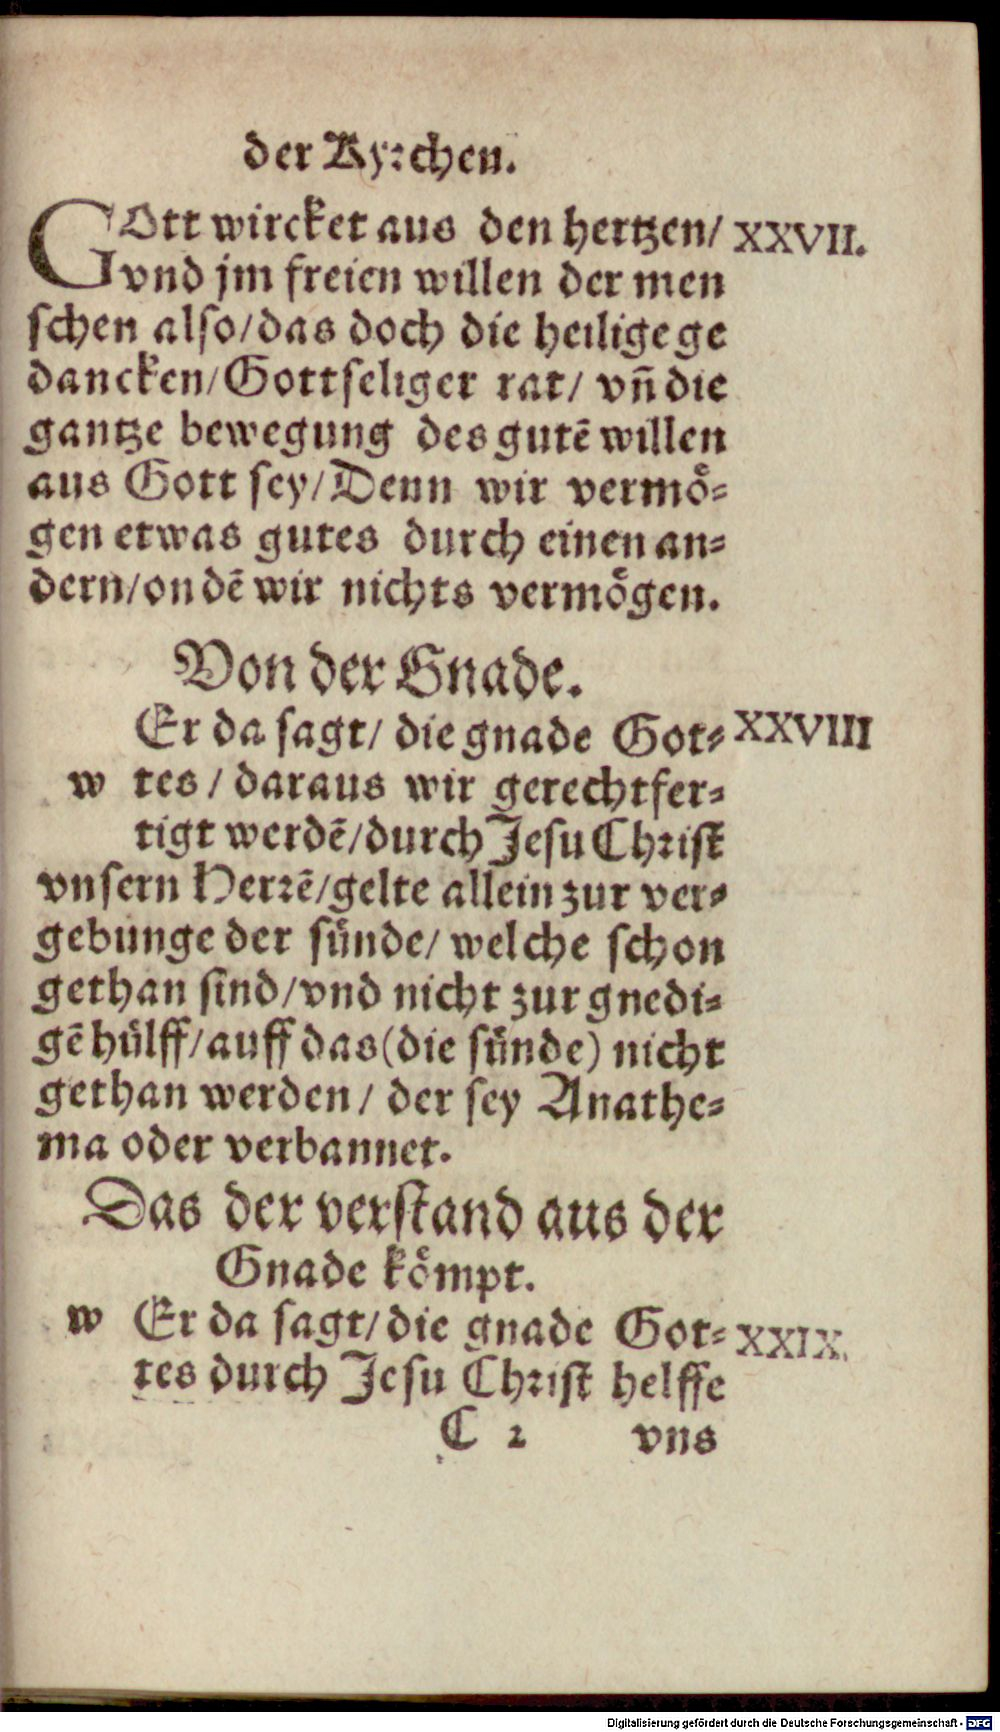 der Kyrchen.
GOtt wircket aus den hertzen/ XXVII.
vnd jm freien willen der men
schen also/das doch die heilige ge
dancken/Gottseliger rat/ vñ die
gantze bewegung des gutē willen
aus Gott sey/Denn wir vermoͤ-
gen etwas gutes durch einen an-
dern/on dē wir nichts vermoͤgen.
Von der Gnade.
Er da sagt/ die gnade Got- XXVIII
w tes/ daraus wir gerechtfer-
tigt werdē/durch Jesu Christ
vnsern Herrē/gelte allein zur ver-
gebunge der suͤnde/ welche schon
gethan sind/vnd nicht zur gnedi-
gē huͤlff/auff das(die suͤnde) nicht
gethan werden/ der sey Anathe-
ma oder verbannet.
Das der verstand aus der
Gnade koͤmpt.
w Er da sagt/die gnade Got- XXIX.
tes durch Jesu Christ helffe
C 2 vns
Digitalisierung gefördert durch die Deutsche Forschungsgemeinschaft - DFG